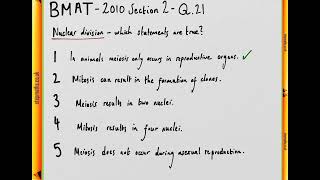 BMAT - 2010 Section 2 - Q.21
Nuclear division - which statements are true?
1 In animals meiosis only occurs in reproductive organs. ✓
2 Mitosis can result in the formation of clones.
3 Meiosis results in two nuclei.
4 Mitosis results in four nuclei.
5 Meiosis does not occur during asexual reproduction.